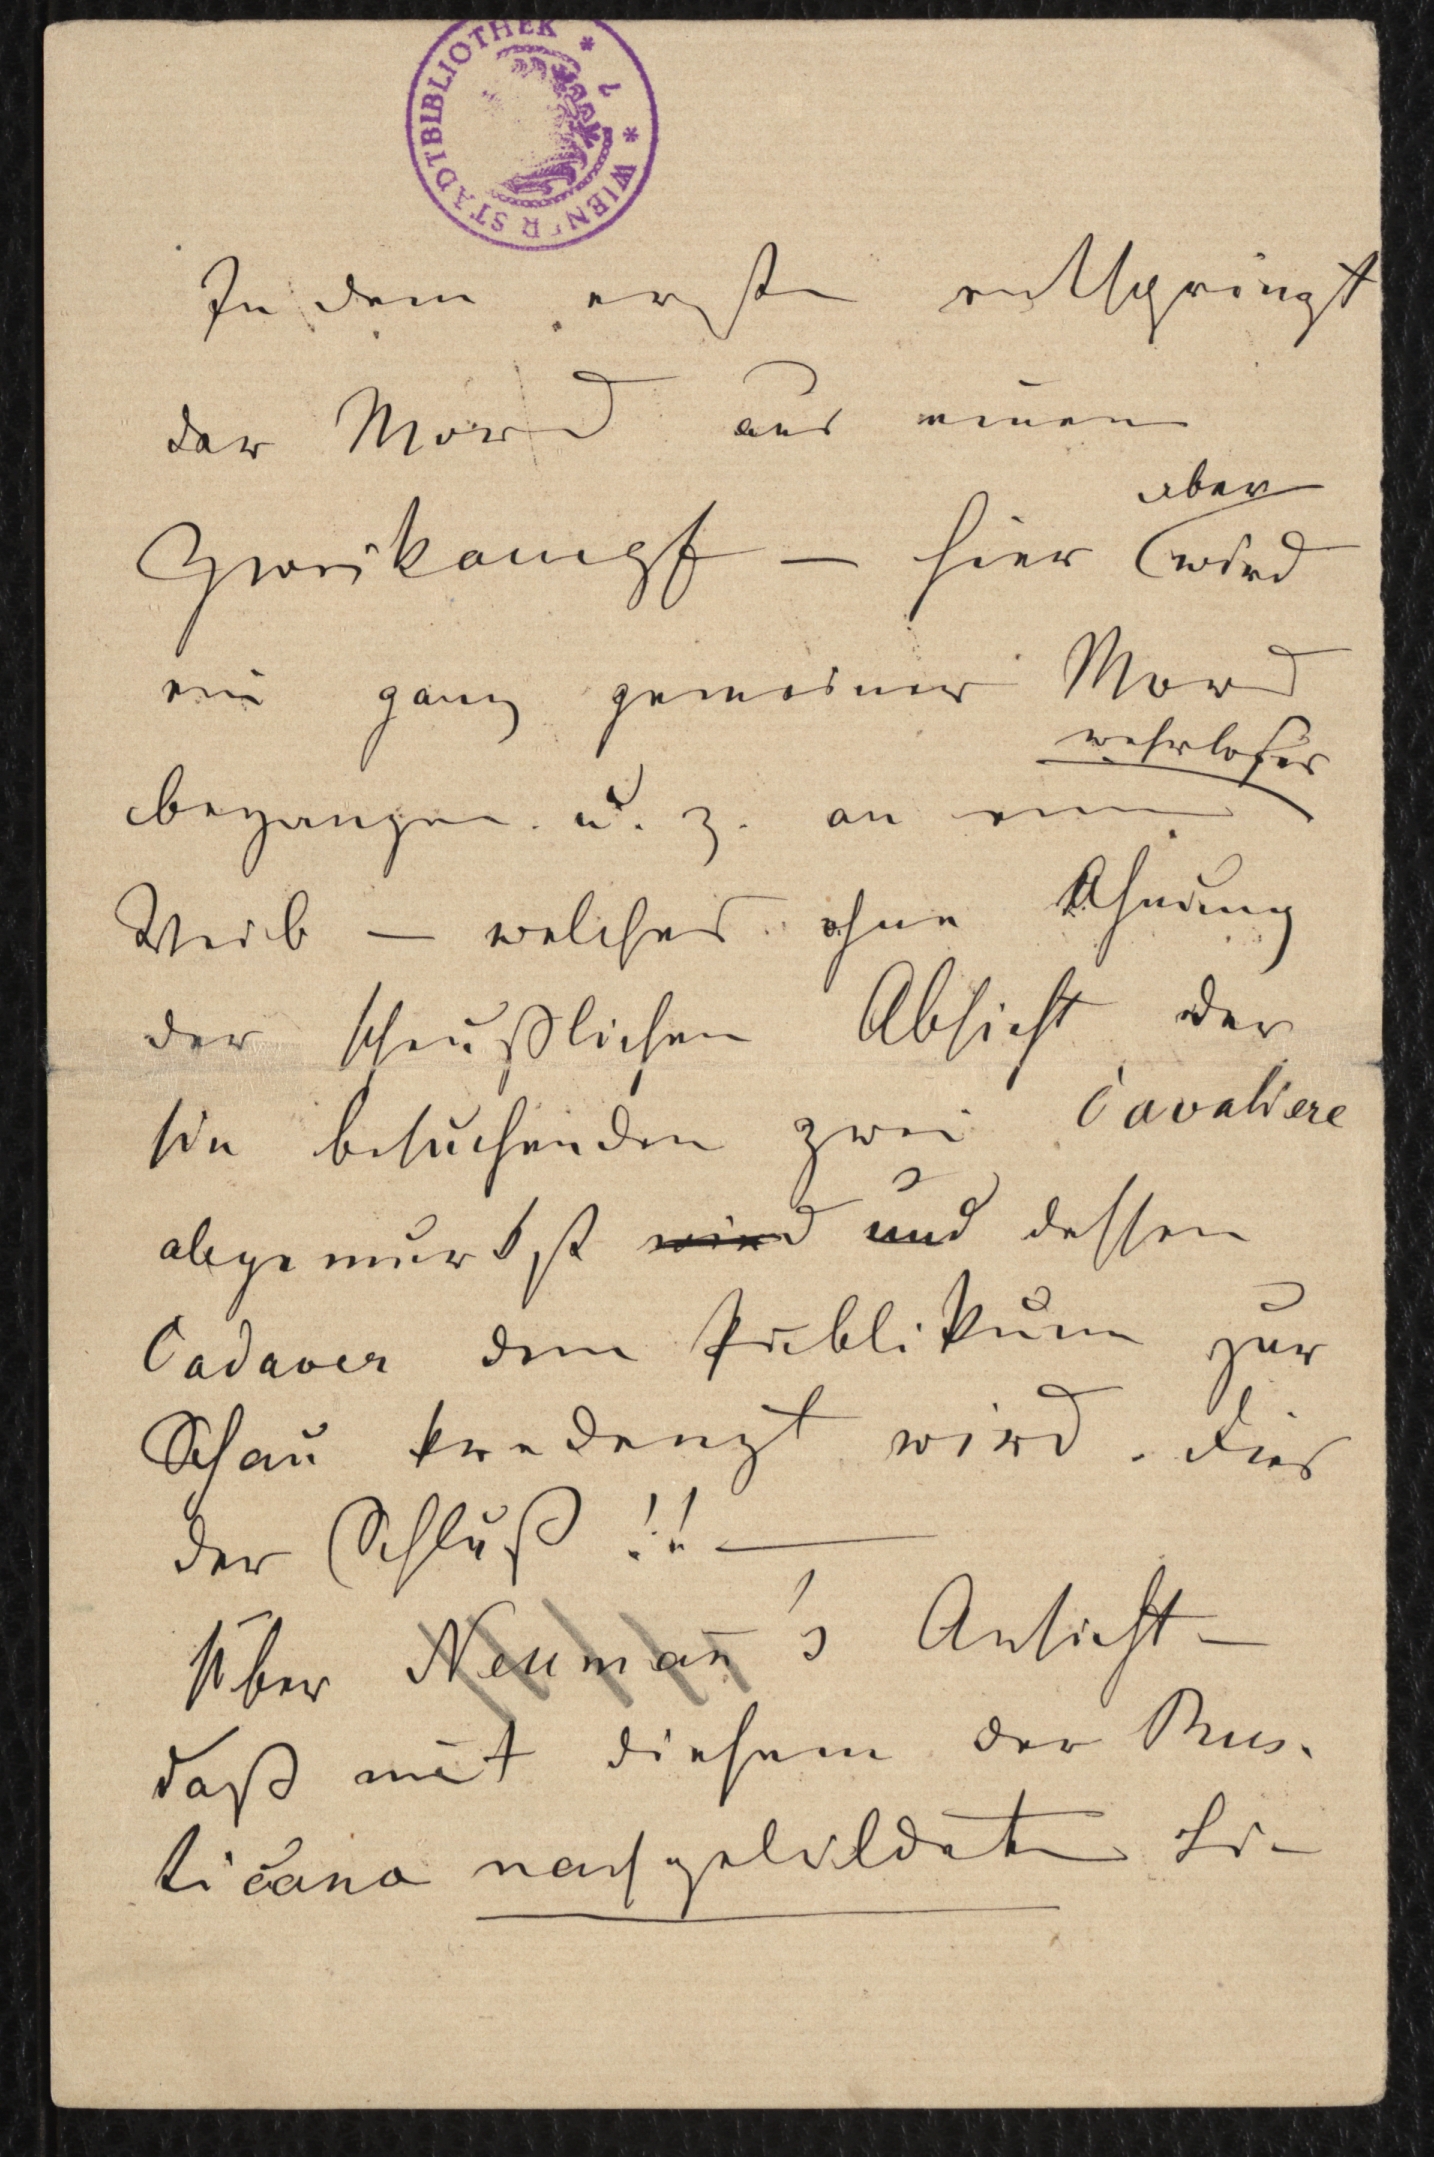 WIENER STADTBIBLIOTHEK
In dem ersten entspringt
der Mord aus einem
aber
Zweikampf — hier wird
ein ganz gemeiner Mord
wehrloses
begangen u. z. an ein
Weib — welches ohne Ahnung
der scheußlichen Absicht der
sie besuchenden zwei Cavaliere
abgemurkst wird und dessen
Cadaver dem Publikum zur
Schau kredenzt wird. Dies
der Schluß!! —
Über Neuman̄'s Ansicht —
daß mit diesem der Rus-
ticana nachgebildeten